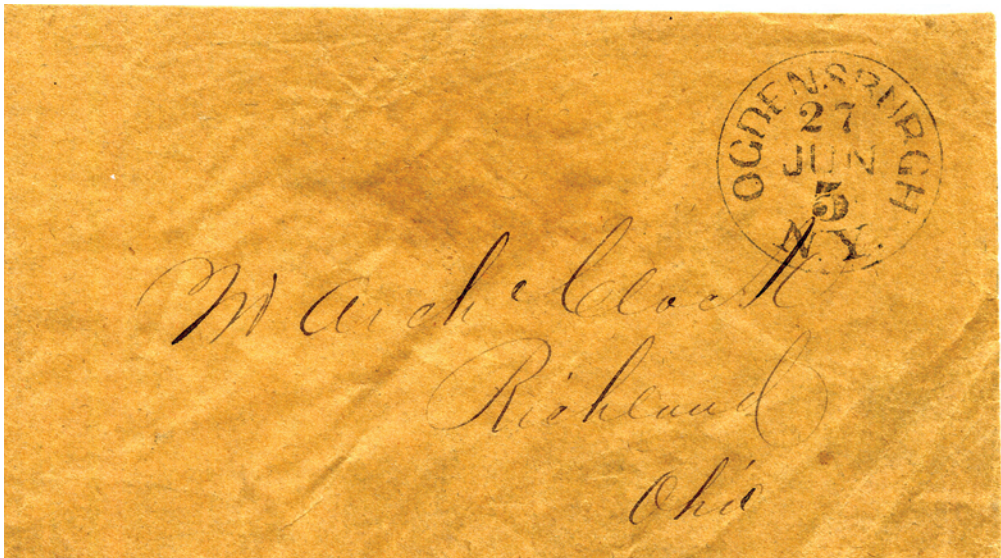 OGDENSBURGH
27
JUN
5
N.Y.
Mr Arch
Richland
Ohio